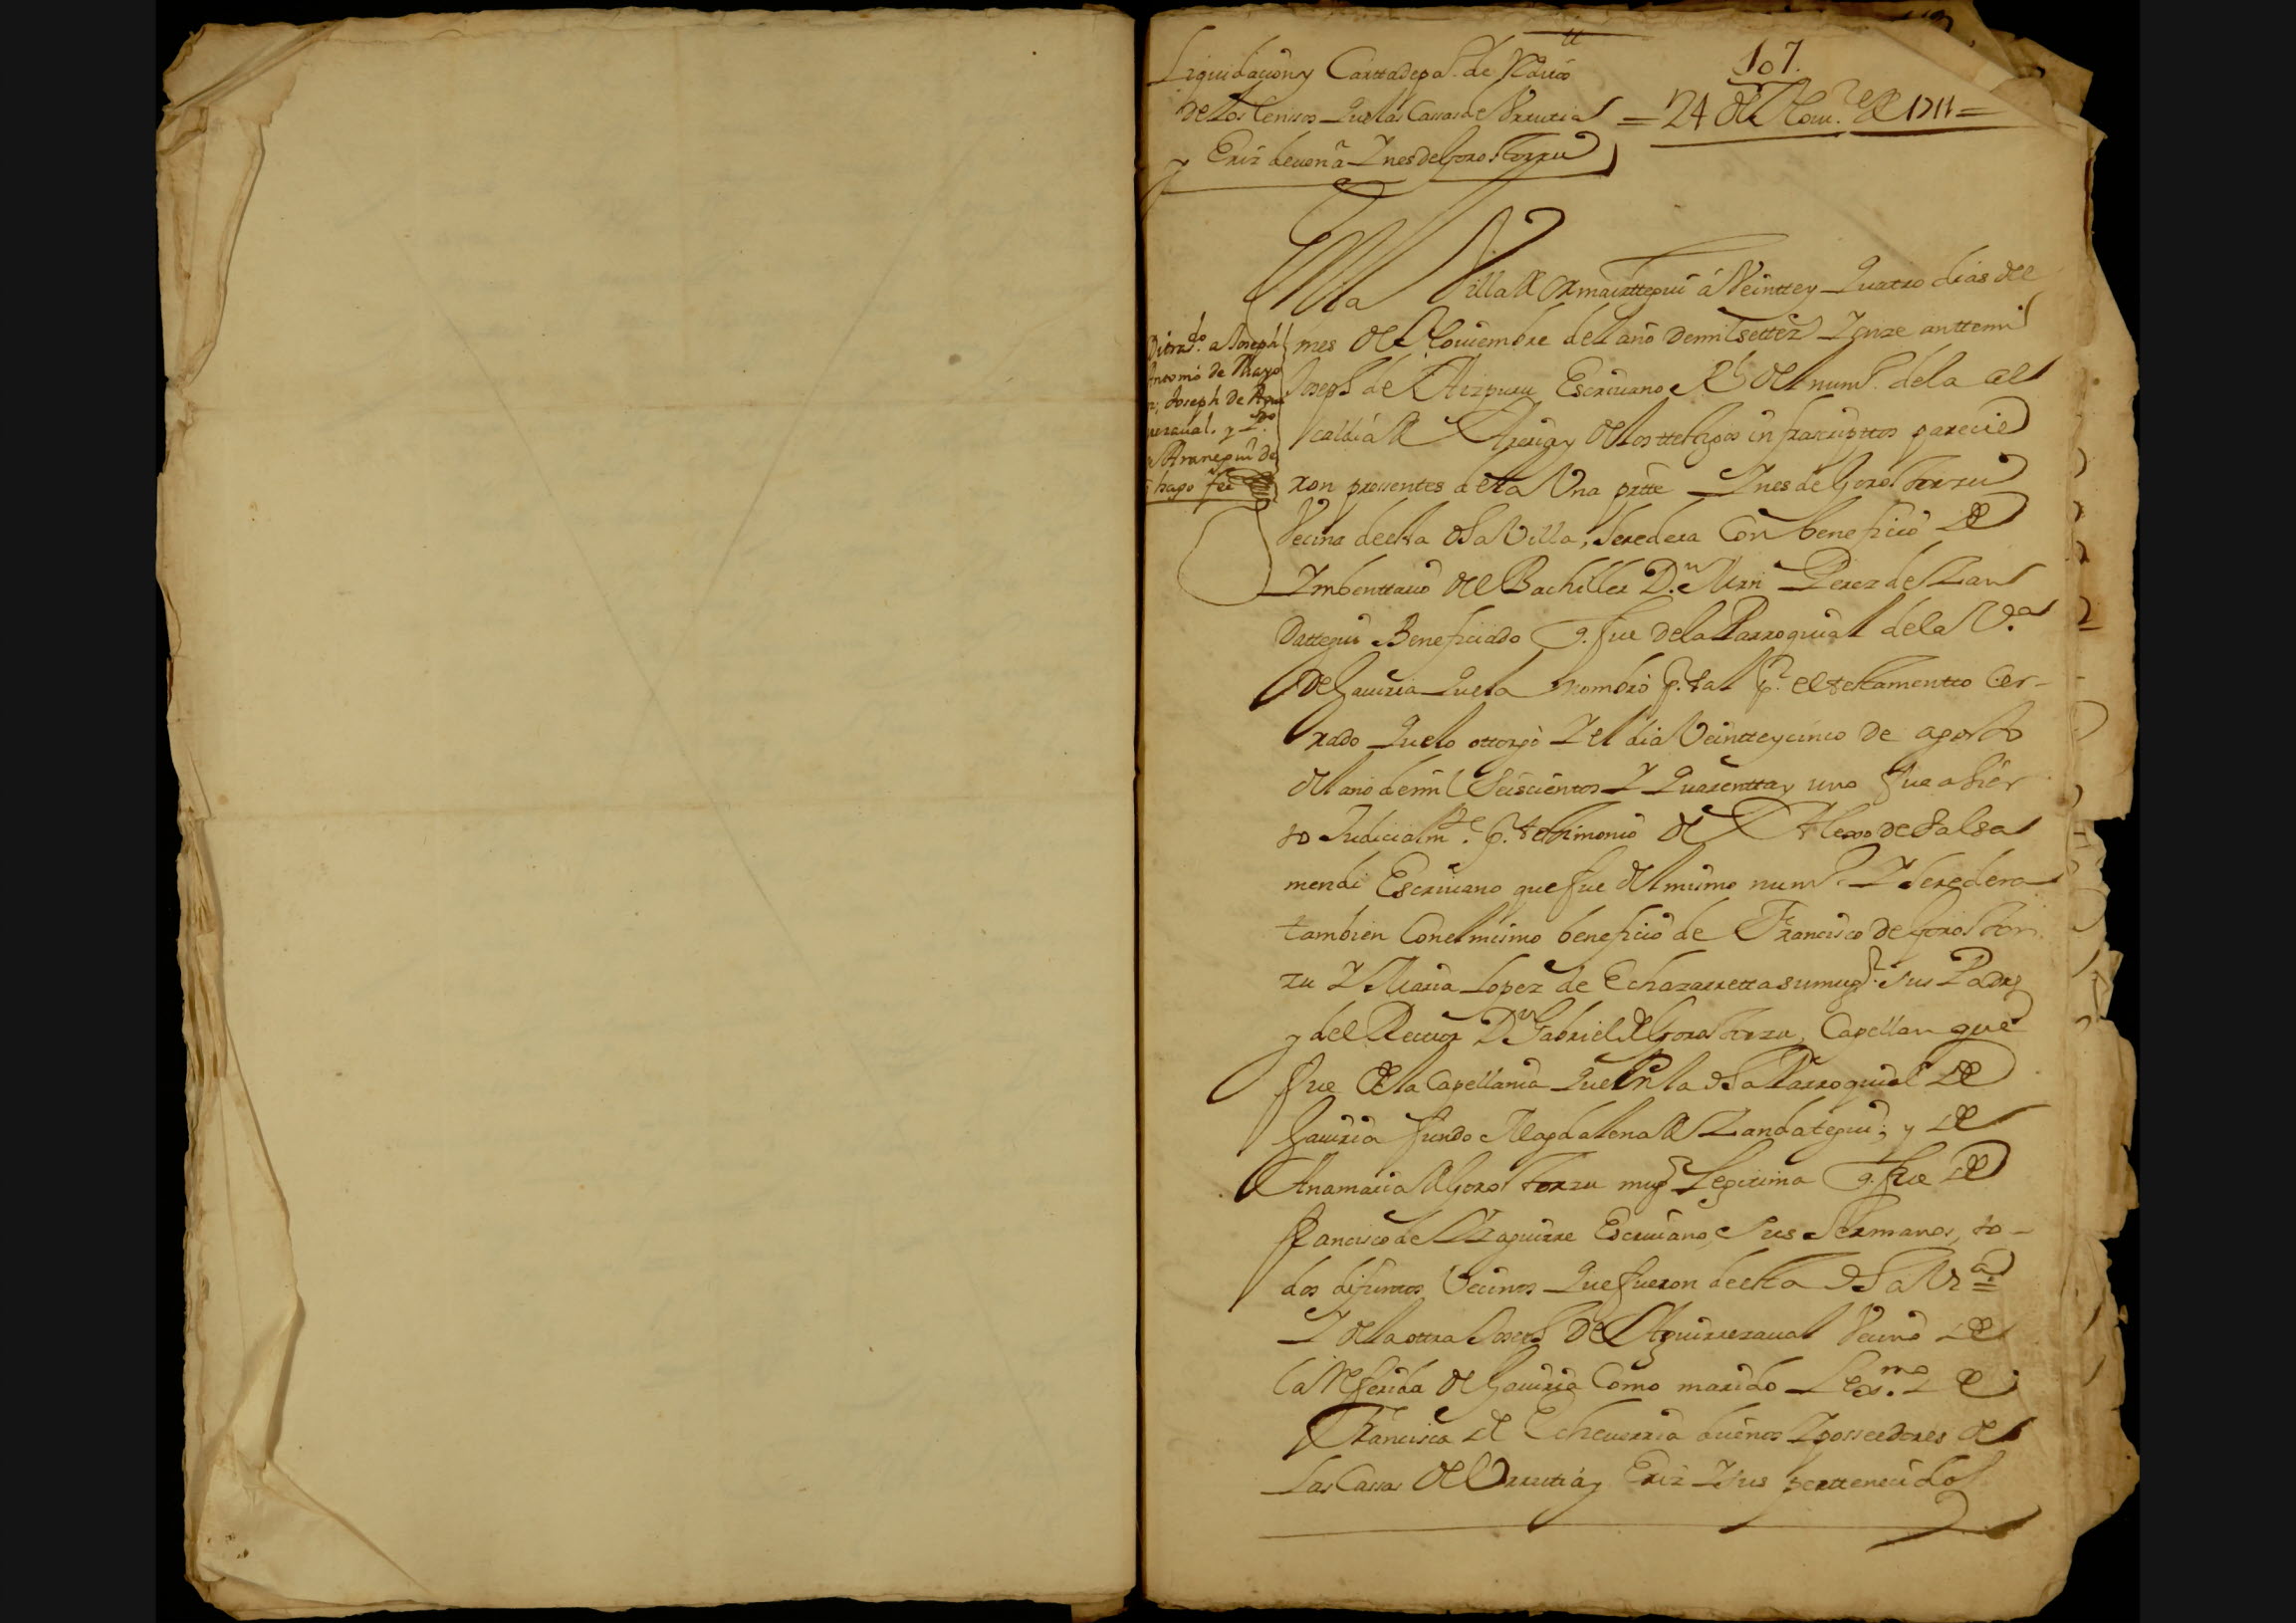 107.
Liquidaçion y Cartta de pago de Redittos
de los Censos que las Cassas de Vrrutia
y Eriz deuen a Ynes de Gorostorzu
= 24 de Nou.re de 1711 =
En la Villa de Ormaizttegui á Veintte y Quatro dias del
mes de Nouiembre del año de mil settez.s Y onze antte mi
Joseph de Aizpuru Escriuano R.l del num.o de la al
caldia de Areria y de los ttestigos infraescripttos parecie
ron pressentes de la Vna partte Ynes de Gorostorzu
Vecina de esta dha Villa, heredera Con beneficio de
Ymbenttario del Bachiller D.n Mrn Perez de Zan
dattegui Beneficiado q. fue de la Parroquial de la V.a
de Gauiria que la nombró p.r tal p.r el testamentto Cer-
rado que lo ottorgó Y el dia Veintte y cinco de agosto
del año de mil Seiscientos Y Quarentta y uno fue abier
to Judicialm.te p.r testimonio de Alexo de Galar
mendi Escriuano que fue del mismo num.o Y heredera
tambien Con el mismo beneficio de Francisco de Gorostor
zu Y Maria Lopez de Echazarretta su muger sus Padres
y del Rector D.n Gabriel de Gorostorzu, Capellan que
fue de la Capellania que en la dha Parroquial de
Gauiria fundo Magdalena de Zandategui; y de
Ana maria de Gorostorzu muger Legitima q. fue de
Francisco de Yzaguirre Escriuano, sus hermanos, to-
dos difuntos Vecinos que fueron de esta dha V.a =
Y de la ottra Joseph de Aguirrezaual Vecino de
la referida de Gauiria Como marido Lex.mo de
Francisca de Echeuerria dueños Y posseedores de
las Cassas de Vrrutia y Eriz Y sus perttenecidos
a Joseph
Antonio de Mayo
Joseph de Agui
rrezaual. y
Aranegui de
hago fee